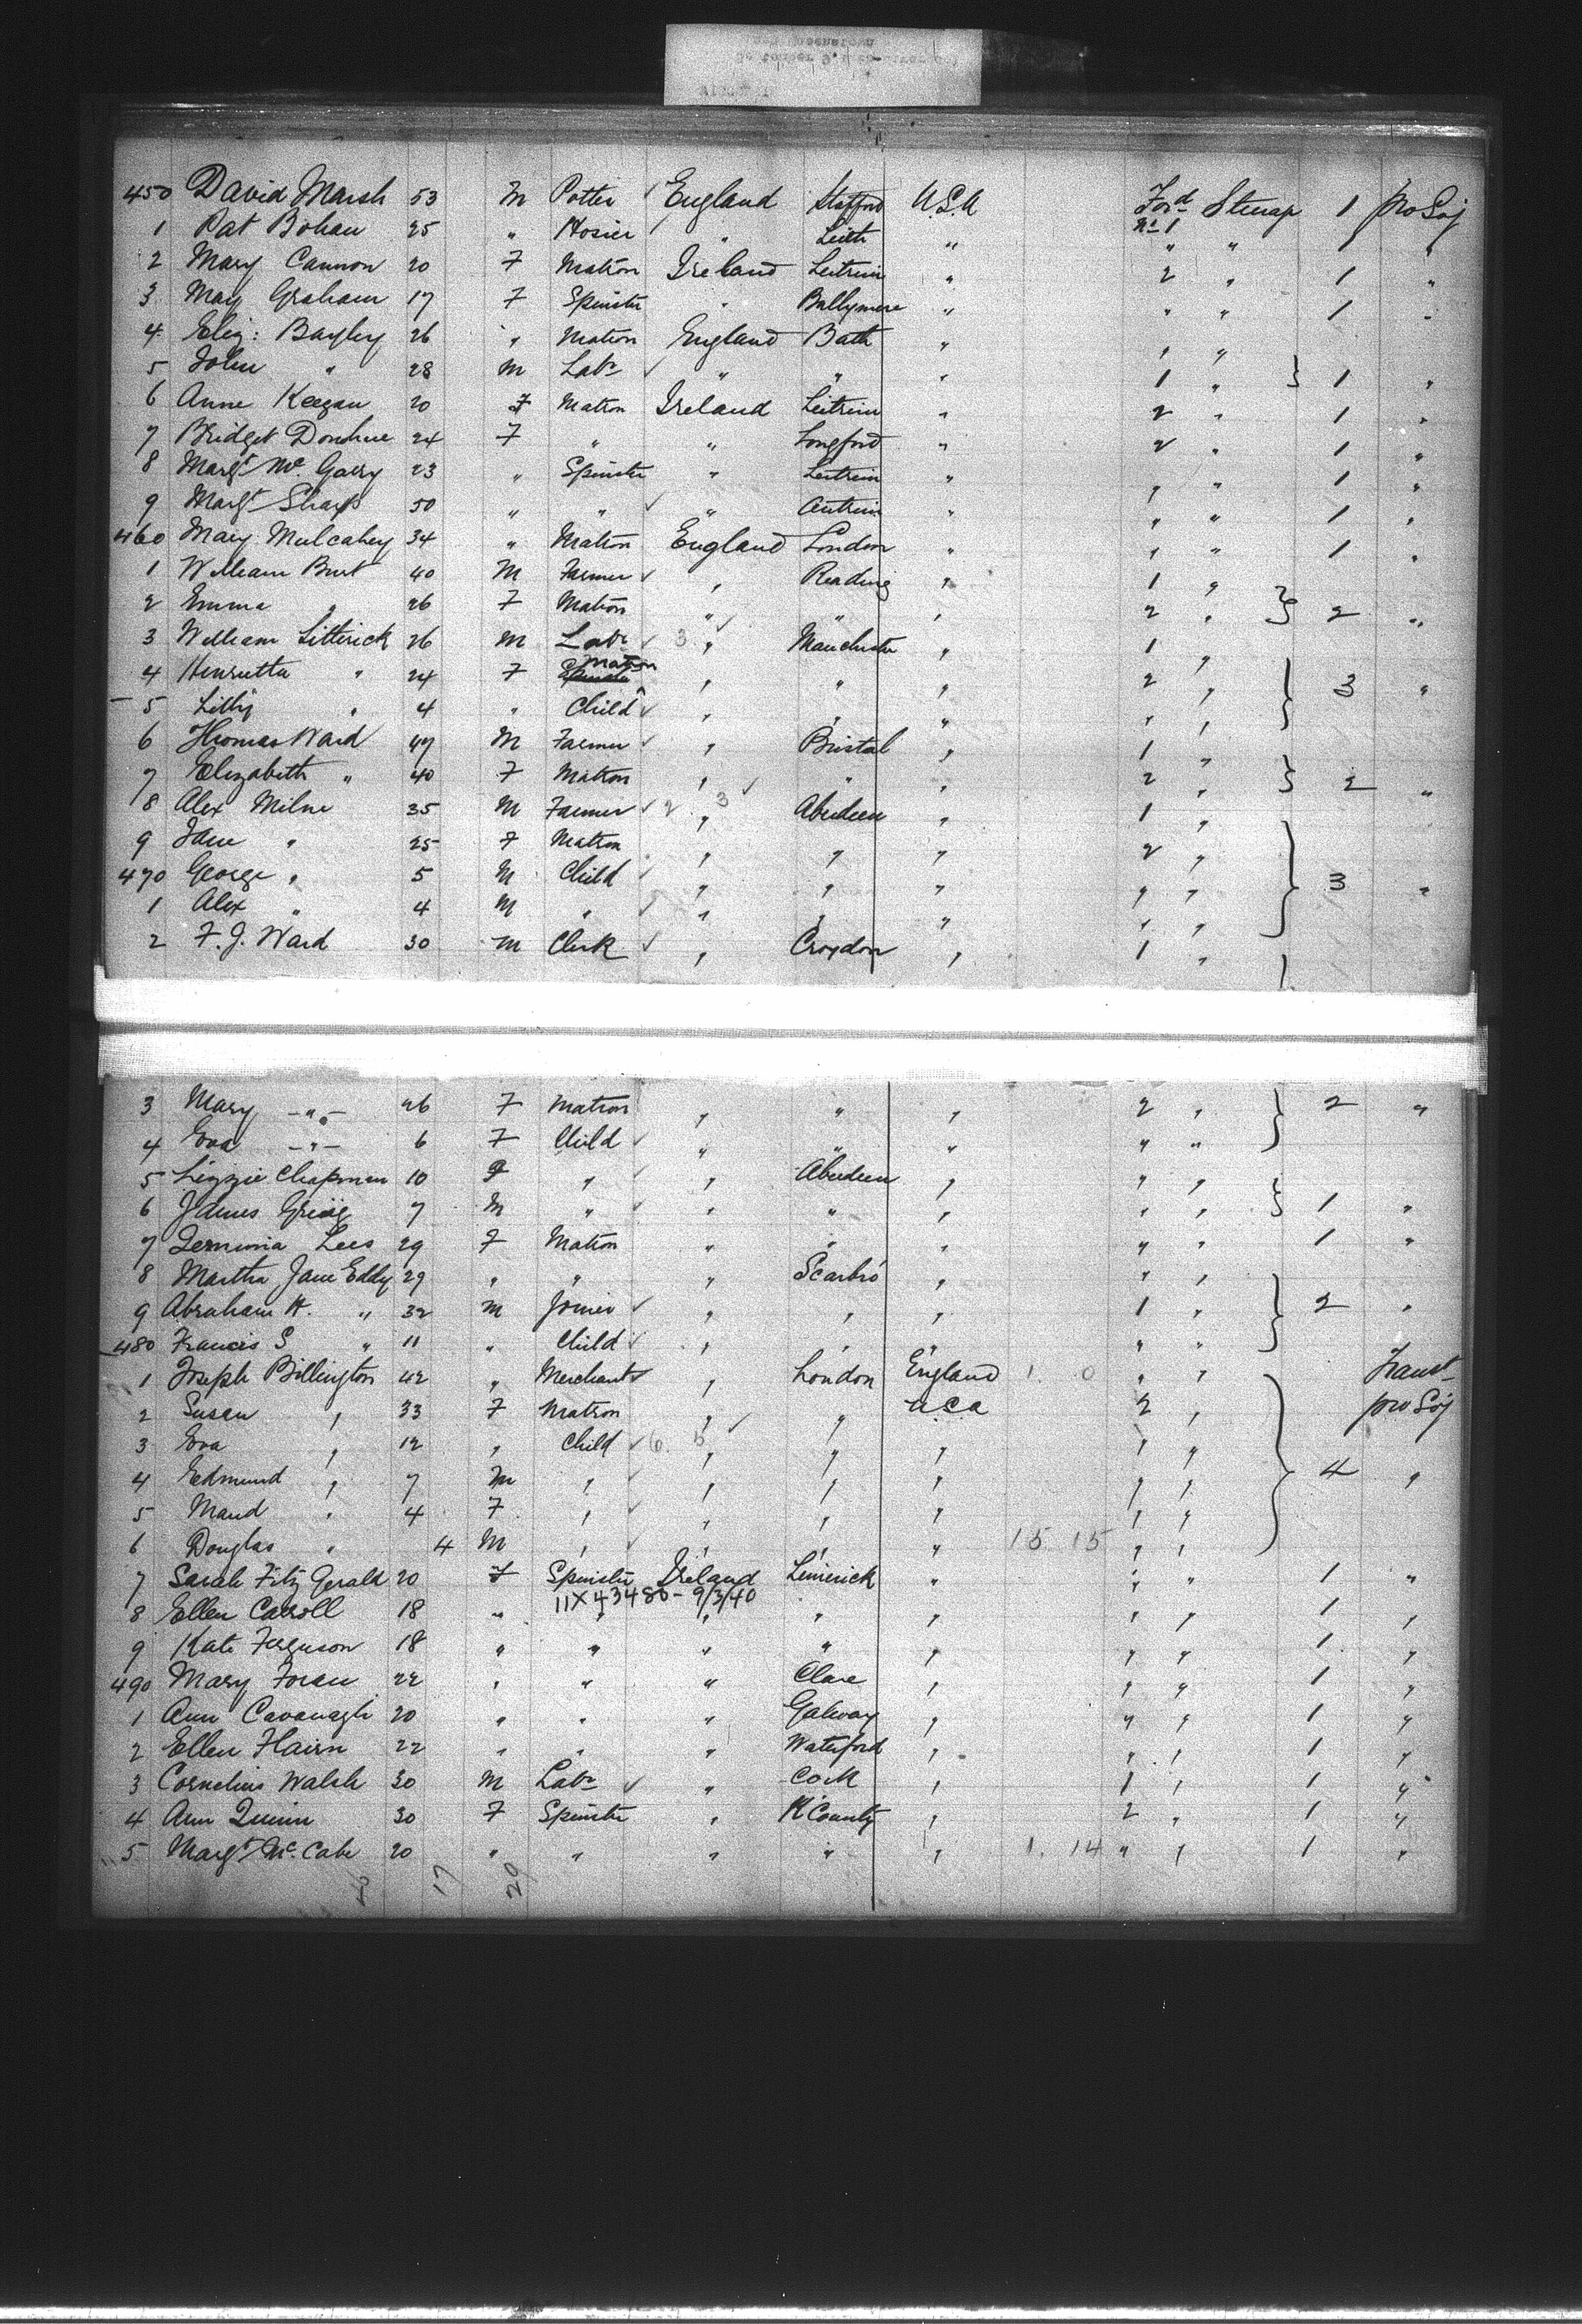 450 David Marsh 53 M Potter England Stafford U.S.A Ford Steerage 1 pro Soj
1 Pat Bohan 25 " Hosier " Leith " No 1 " " 1 "
2 Mary Cannon 20 F Matron Ireland Leitrim " 2 " 1 "
3 May Graham 17 F Spinster " Ballymore " " " 1 "
4 Eliz: Bayley 26 " Matron England Bath " " "
5 John " 28 M Labr " " " 1 " } 1 "
6 Anne Keegan 20 F Matron Ireland Leitrim " 2 " 1 "
7 Bridget Donohue 24 F " " Longford " 2 " 1 "
8 Margt Mc Garry 23 " Spinster " Leitrim " " " 1 "
9 Margt Sharp 50 " " " Antrim " " " 1 "
460 Mary Mulcahey 34 " Matron England London " " " 1 "
1 William Burt 40 M Farmer " Reading " 1 "
2 Emma " 26 F Matron " " " 2 " } 2 "
3 William Litterick 26 M Labr 3 " Manchester " 1 "
4 Henrietta " 24 F Matron " " " 2 " } 3 "
5 Lilly " 4 " Child " " " " "
6 Thomas Ward 47 M Farmer " Bristol " 1 "
7 Elizabeth " 40 F Matron " " " 2 " } 2 "
8 Alex Milne 35 M Farmer 2 3 " Aberdeen " 1 "
9 Jane " 25 F Matron " " " 2 "
470 George " 5 M Child " " " " " } 3 "
1 Alex " 4 M " " " " " "
2 F. J. Ward 30 M Clerk " Croydon " 1 "
3 Mary " 26 F Matron " " " 2 " } 2 "
4 Eva " 6 F Child " " " " "
5 Lizzie Chapman 10 F " " Aberdeen " " "
6 James Greig 7 M " " " " " " } 1 "
7 Jemima Lees 29 F Matron " " " " " 1 "
8 Martha Jane Eddy 29 " " " Scarbro " " "
9 Abraham H. " 32 M Joiner " " " 1 " } 2 "
480 Francis S " 11 " Child " " " " "
1 Joseph Billington 42 " Merchant " London England 1. 0 " " Transt
2 Susan " 33 F Matron " " U.S.A 2 " pro Soj
3 Eva " 12 " Child 6. 5 " " " " "
4 Edmund " 7 M " " " " " " } 4 "
5 Maud " 4 F " " " " " "
6 Douglas " 4 M " " " " 15 15 " "
7 Sarah Fitz Gerald 20 F Spinster Ireland Limerick " " " 1 "
11X43480 - 9/3/40
8 Ellen Carroll 18 " " " " " " " 1 "
9 Kate Ferguson 18 " " " " " " " 1 "
490 Mary Foran 22 " " " Clare " " " 1 "
1 Ann Cavanagh 20 " " " Galway " " " 1 "
2 Ellen 22 " " " Waterford " " " 1 "
3 Cornelius Walsh 30 M Labr " Cork " 1 " 1 "
4 Ann Quinn 30 F Spinster " K County " 2 " 1 "
5 Margt Mc Cabe 20 " " " " " 1. 14 " " 1 "
17 20